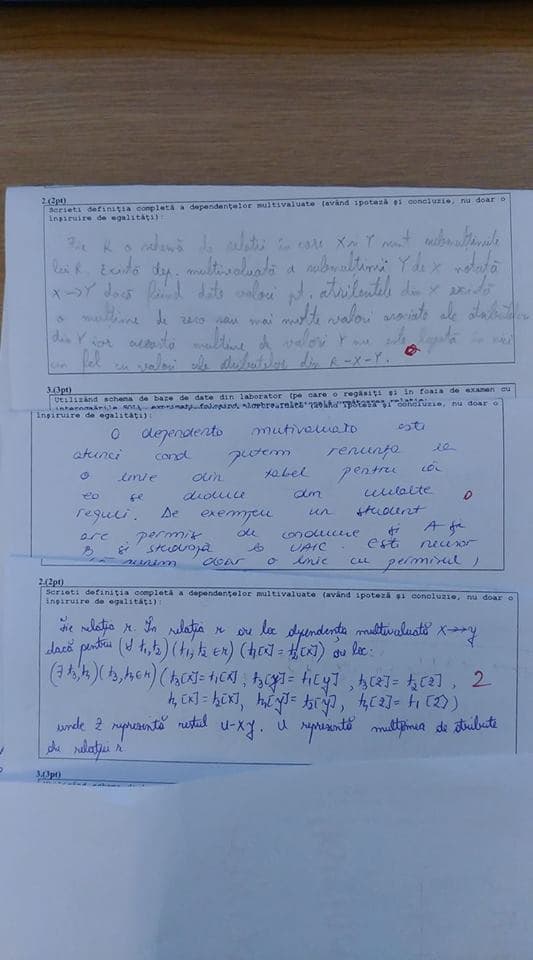 2.(2pt)
Scrieti definiția completă a dependențelor multivaluate (având ipoteză și concluzie, nu doar o
înșiruire de egalități):
Fie R o schemă de relatii în care X și Y sunt submultimile
lui R. Există dep. multivaluată a submultimii Y de X notată
X→Y dacă fiind date valori pt. atributele din X există
o multime de zero sau mai multe valori asociate ale atributelor
din Y iar această multime de valori Y nu este legată în nici
un fel cu valori ale atributelor din R-X-Y.
0
3.(3pt)
Utilizând schema de baze de date din laborator (pe care o regăsiți și în foaia de examen cu
înșiruire de egalități):
O dependenta mutivaluata este
atunci cand putem renunța la
o linie din tabel pentru că
ea se deduce din celelalte
reguli. De exemplu un student
are permis de conducere și A și
B și studiază la UAIC. este nevoie
doar o linie cu permisul,
0
2.(2pt)
Scrieti definiția completă a dependențelor multivaluate (având ipoteză și concluzie, nu doar o
înșiruire de egalități):
Fie relația r. În relația r are loc dependența multivaluată X→→y
dacă pentru (∀ t₁,t₂)(t₁,t₂ ∈ r)(t₁[x]=t₂[x]) are loc:
(∃ t₃,t₄)(t₃,t₄∈r)(t₃[x]=t₁[x], t₃[y]=t₁[y], t₃[z]=t₂[z],
2
t₄[x]=t₂[x], t₄[y]=t₂[y], t₄[z]=t₁[z])
unde Z reprezintă restul U-XY. U reprezintă mulțimea de atribute
ale relației r.
3.(3pt)